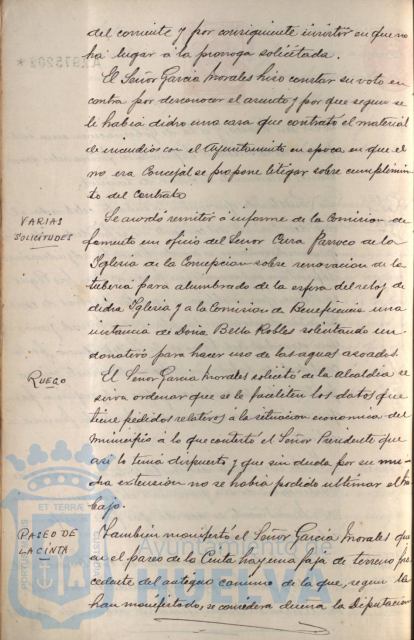 del corriente y por consiguiente insistir en que no
ha lugar á la prorroga solicitada.
El Señor Garcia Morales hizo constar su voto en
contra por desconocer el asunto y por que segun se
le habia dicho una casa que contrató el material
de incendios con el Ayuntamiento en epoca en que el
no era Concejal se propone litigar sobre cumplimien
to del contrato
VARIAS
SOLICITUDES
Se acordó remitir á informe de la Comision de
fomento un oficio del Señor Cura Parroco de la
Iglesia de la Concepcion sobre renovacion de la
tuberia para alumbrado de la esfera del reloj de
dicha Iglesia y a la Comision de Beneficencia una
instancia de Doña Bella Robles solicitando un
donativo para hacer uso de las aguas
RUEGO
El Señor Garcia Morales solicitó de la Alcaldia se
sirva ordenar que se le faciliten los datos que
tiene pedidos relativos á la situacion economica del
municipio á lo que contestó el Señor Presidente que
asi lo tenia dispuesto y que sin duda por su mu-
cha extension no se habia podido ultimar el tra
bajo.
PASEO DE
LA CINTA
Tambien manifestó el Señor Garcia Morales que
en el paseo de la Cinta hay una faja de terreno pro
cedente del antiguo camino de la que, segun le
han manifestado, se considera dueña la Diputacion
ET TERRÆ
PORTUS
Ayuntamiento de
HUELVA